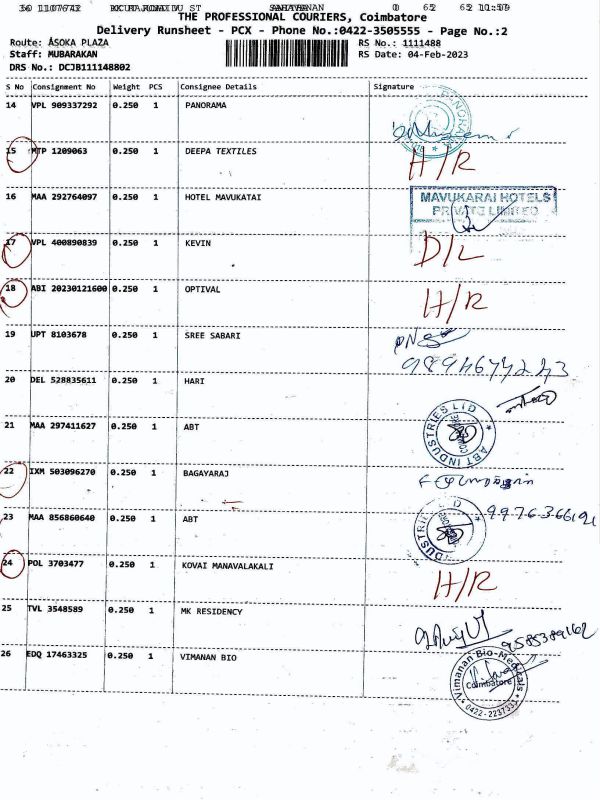 THE PROFESSIONAL COURIERS, Coimbatore
Delivery Runsheet - PCX - Phone No.:0422-3505555 - Page No.:2
Route: ASOKA PLAZA RS No.: 1111488
Staff: MUBARAKAN RS Date: 04-Feb-2023
DRS No.: DCJB111148802
S No Consignment No Weight PCS Consignee Details Signature
14 VPL 909337292 0.250 1 PANORAMA
15 MTP 1209063 0.250 1 DEEPA TEXTILES H/R
16 MAA 292764097 0.250 1 HOTEL MAVUKATAI MAVUKARAI HOTELS
PRIVATE LIMITED
17 VPL 400890839 0.250 1 KEVIN D/L
18 ABI 20230121600 0.250 1 OPTIVAL H/R
19 UPT 8103678 0.250 1 SREE SABARI
20 DEL 528835611 0.250 1 HARI
21 MAA 297411627 0.250 1 ABT ABT INDUSTRIES LTD
22 IXM 503096270 0.250 1 BAGAYARAJ
23 MAA 856860640 0.250 1 ABT
24 POL 3703477 0.250 1 KOVAI MANAVALAKALI H/R
25 TVL 3548589 0.250 1 MK RESIDENCY
26 EDQ 17463325 0.250 1 VIMANAN BIO Vimanan Bio-Medicals
Coimbatore
0422-2237331